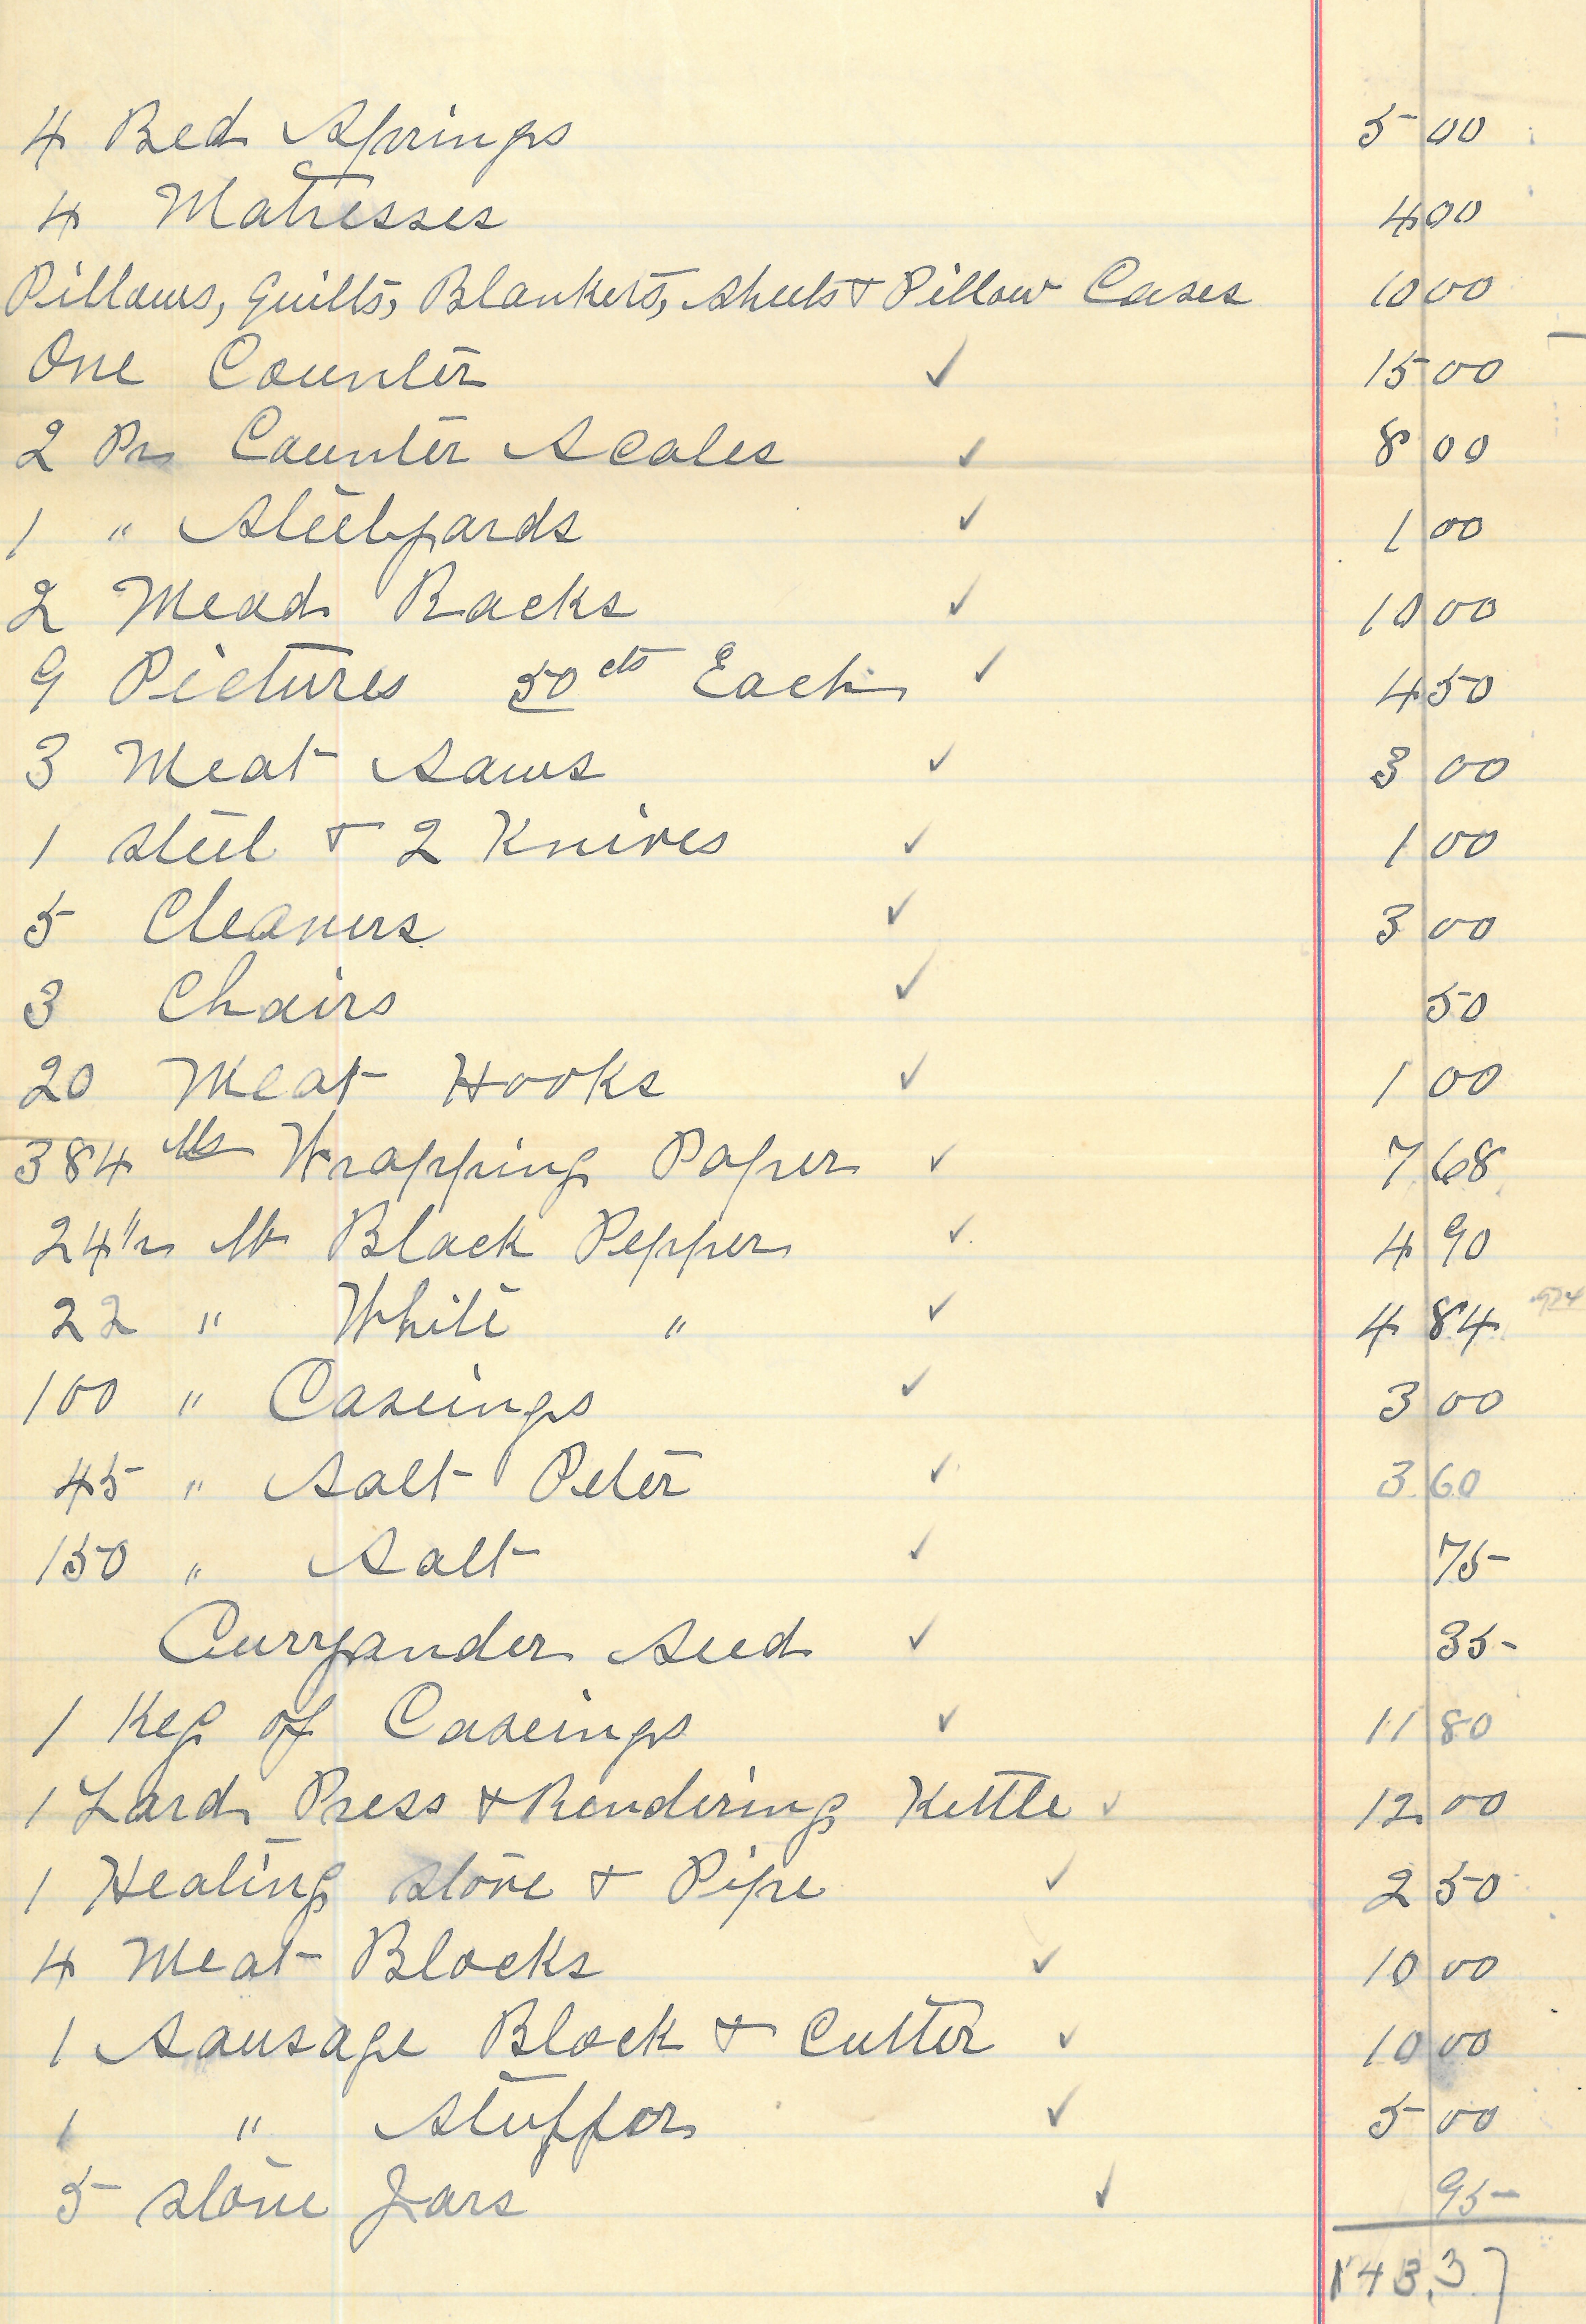 4 Bed Springs 5 00
4 Matresses 4 00
Pillows, Quilts, Blankets, Sheets & Pillow Cases 10 00
One Counter ✓ 15 00
2 Pr Counter Scales ✓ 8 00
1 " Steelyards ✓ 1 00
2 Mead Racks ✓ 10 00
9 Pictures 50 cts Each ✓ 4 50
3 Meat Saws ✓ 3 00
1 Steel & 2 Knives ✓ 1 00
5 Cleavers ✓ 3 00
3 Chairs ✓ 50
20 Meat Hooks ✓ 1 00
384 lbs Wrapping Paper ✓ 7 68
24 1/2 lb Black Pepper ✓ 4 90
22 " White " ✓ 4 84
100 " Caseings ✓ 3 00
45 " Salt Peter ✓ 3 60
150 " Salt ✓ 75
Curryander Seed ✓ 35
1 Keg of Caseings ✓ 11 80
1 Lard Press & Rendering Kettle ✓ 12 00
1 Heating Stove & Pipe ✓ 2 50
4 Meat Blocks ✓ 10 00
1 Sausage Block & Cutter ✓ 10 00
1 " Stuffor ✓ 5 00
5 Stone Jars ✓ 95
143.37